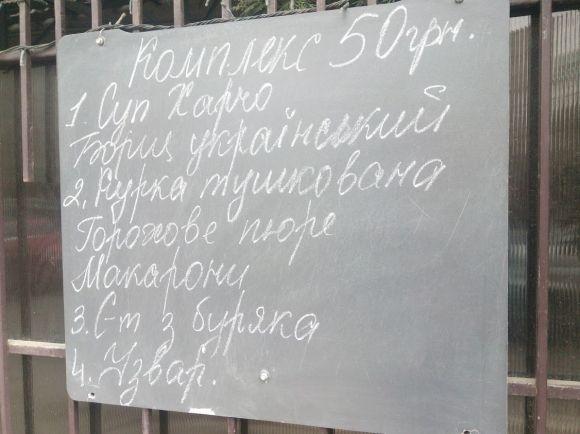 Комплекс 50грн.
1. Суп Харчо
Борщ український
2. Курка тушкована
Горохове пюре
Макарони
3. С-т з буряка
4. Узвар.